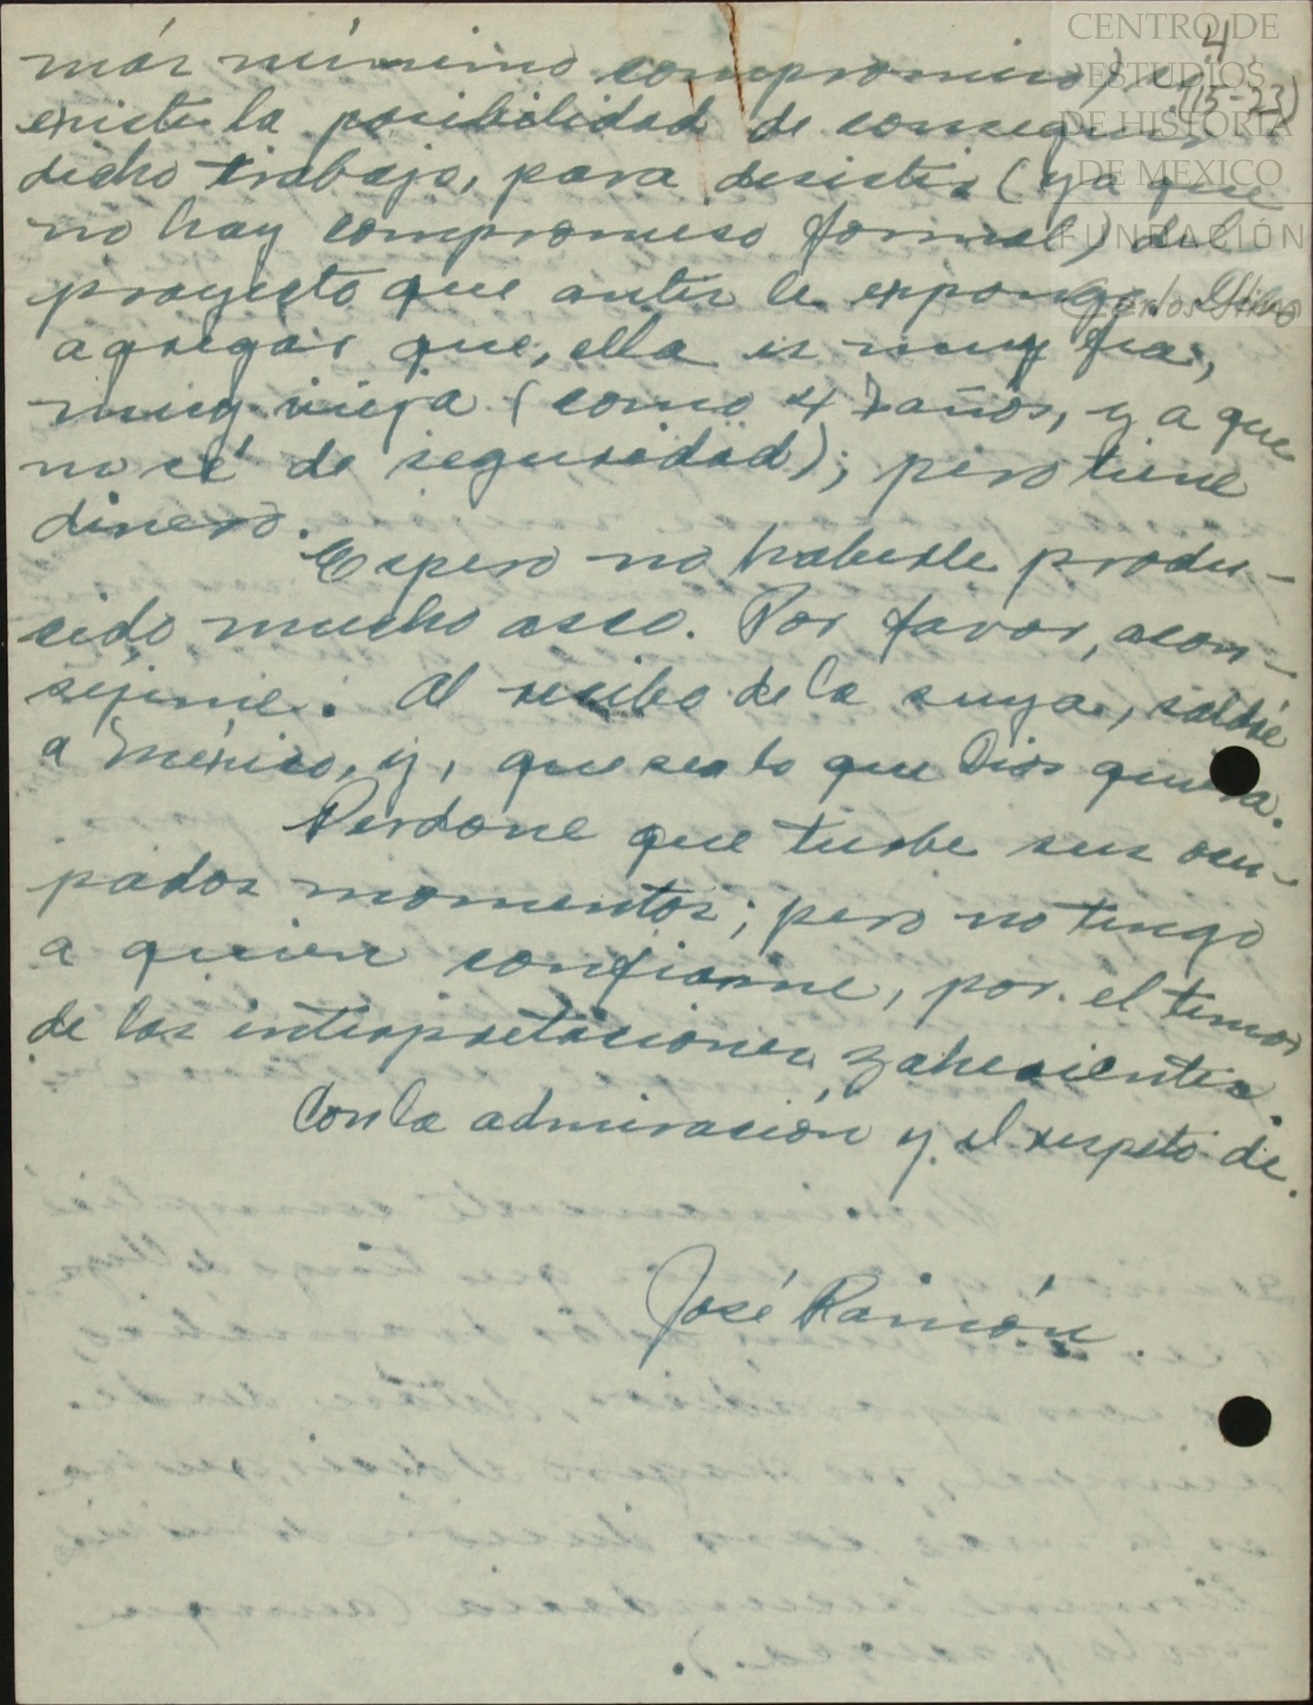 4
(15-23)
CENTRO DE
ESTUDIOS
DE HISTORIA
DE MEXICO
FUNDACIÓN
Carlos Slim
más mínimo compromiso) si
existe la posibilidad de conseguir
dicho trabajo, para desistir (ya que
no hay compromiso formal) del
proyecto que antes le expongo. Debo
agregar que, ella es muy fea,
muy vieja (como 47 años, ya que
no sé de seguridad); pero tiene
dinero.
Espero no haberle produ-
cido mucho asco. Por favor, acon-
séjeme. Al recibo de la suya, saldré
a México, y, que sea lo que Dios quiera.
Perdone que turbe sus ocu-
pados momentos; pero no tengo
a quien confiarme, por el temor
de las interpretaciones zaherientes.
Con la admiración y el respeto de.
José Ramón.